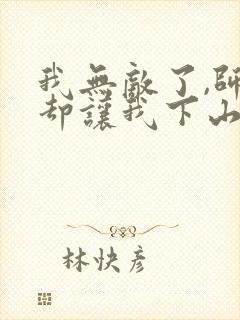 我無敵了,師
却讓我下山
林快彥